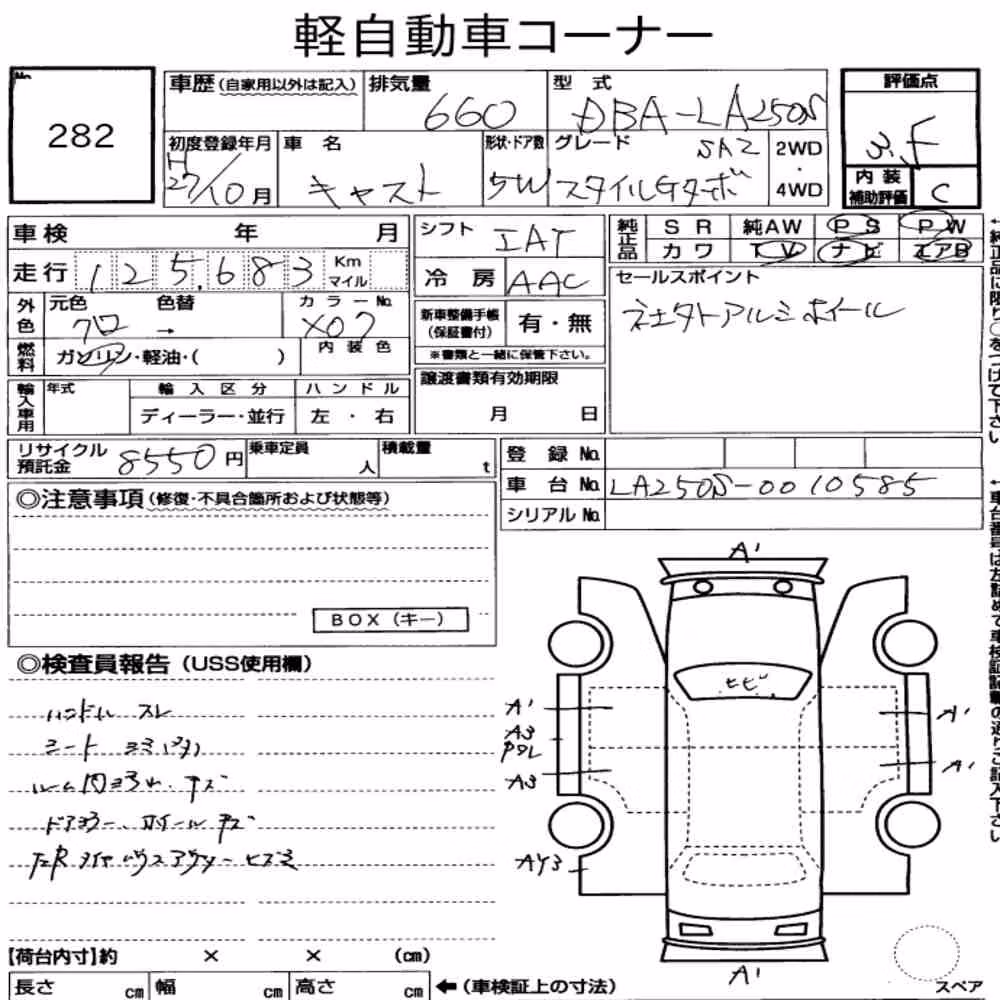 軽自動車コーナー
No.
282
車歴(自家用以外は記入)
排気量
660
型式
DBA-LA250S
評価点
3.5
初度登録年月
H
27/10月
車名
キャスト
形状・ドア数
5W
グレード
SA2
スタイルGターボ
2WD
・
4WD
内装
補助評価
C
車検 年 月
走行 125,683 Km
マイル
シフト IAT
冷房 AAC
純正品
SR 純AW PS PW
カワ TV ナビ エアB
セールスポイント
社外アルミホイール
外色
元色 色替 カラーNo.
クロ → X07
燃料
ガソリン・軽油・( )
内装色
新車整備手帳
(保証書付)
有・無
※書類と一緒に保管下さい。
輸入車用
年式
輸入区分 ハンドル
ディーラー・並行 左・右
譲渡書類有効期限
月 日
リサイクル
預託金
8550円
乗車定員
人
積載量
t
登録No.
車台No. LA250S-0010585
シリアルNo.
◎注意事項(修復・不具合箇所および状態等)
BOX(キー)
◎検査員報告(USS使用欄)
ハンドル スレ
シート
キズ
ホイール キズ
A1
ヒビ
A1
A3
A3
AY3
A1
A1
A1
【荷台内寸】約 × × (cm)
長さ cm 幅 cm 高さ cm
←(車検証上の寸法)
スペア